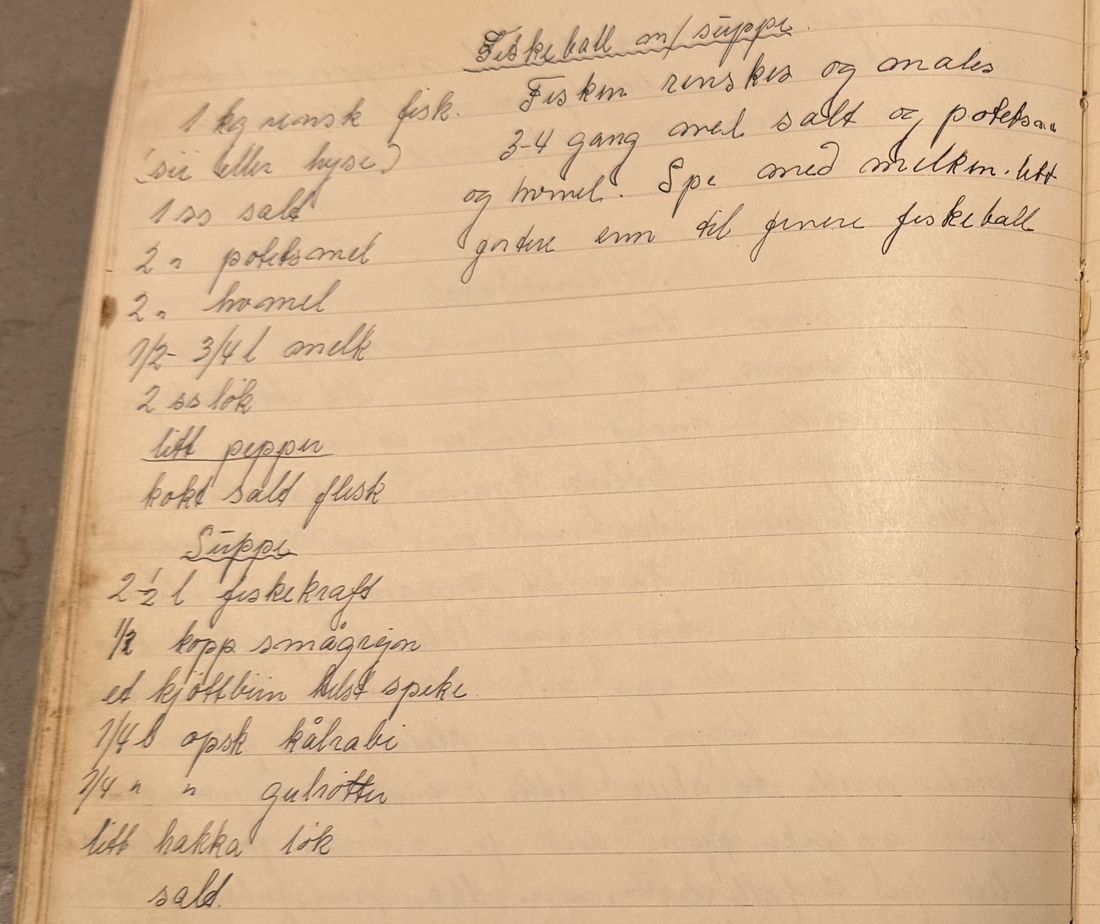 Fiskeball m/ suppe
1 kg rensk fisk.
(sei eller hyse)
1 ss salt
2 " potetsmel
2 " hvmel
1/2 - 3/4 l melk
2 ss løk
litt pepper
kokt salt flesk
Fisken renskes og males
3-4 gang med salt og potetsm
og hvmel. Spe med melken. litt
grovere enn til finere fiskeball
Suppe
2 1/2 l fiskekraft
1/2 kopp smågrejon
et kjøttbein helst speke
1/4 l opsk kålrabi
1/4 " " gulrøtter
litt hakka løk
salt.